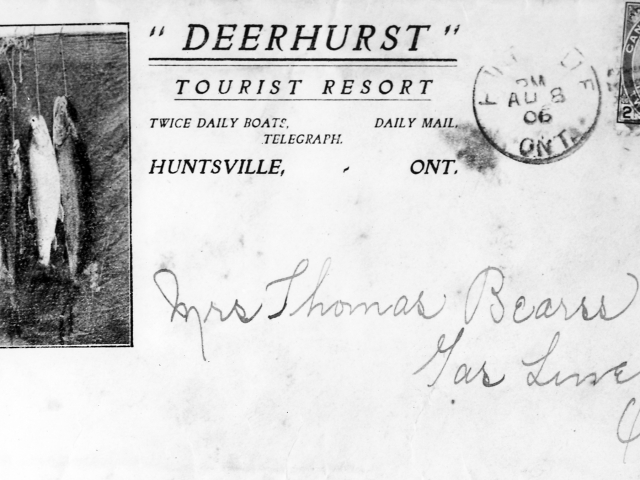 " DEERHURST "
TOURIST RESORT
TWICE DAILY BOATS, DAILY MAIL,
TELEGRAPH.
HUNTSVILLE, - ONT.
PM
AU 8
06
ONT.
2
Mrs Thomas Bearss
Gas Line